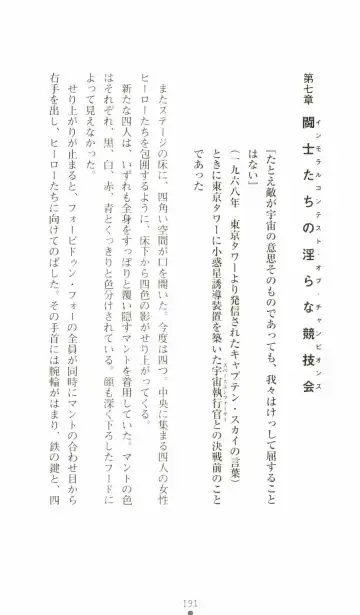 第七章　闘士たちの淫らな競技会
インモラルコンテスト・オブ・チャンピオンズ
『たとえ敵が宇宙の意思そのものであっても、我々はけっして屈すること
はない』
（一九六八年　東京タワーより発信されたキャプテン・スカイの言葉）
ときに東京タワーに小惑星誘導装置を築いた宇宙執行官との決戦前のこと
であった
またステージの床に、四角い空間が口を開いた。今度は四つ。中央に集まる四人の女性
ヒーローたちを包囲するように、床下から四色の影がせり上がってくる。
新たな四人は、いずれも全身をすっぽりと覆い隠すマントを着用していた。マントの色
はそれぞれ、黒、白、赤、青とくっきりと色分けされている。顔も深く下ろしたフードに
よって見えなかった。
せり上がりが止まると、フォービドゥン・フォーの全員が同時にマントの合わせ目から
右手を出し、ヒーローたちに向けてのばした。その手首には腕輪がはまり、鉄の鍵と、四
191